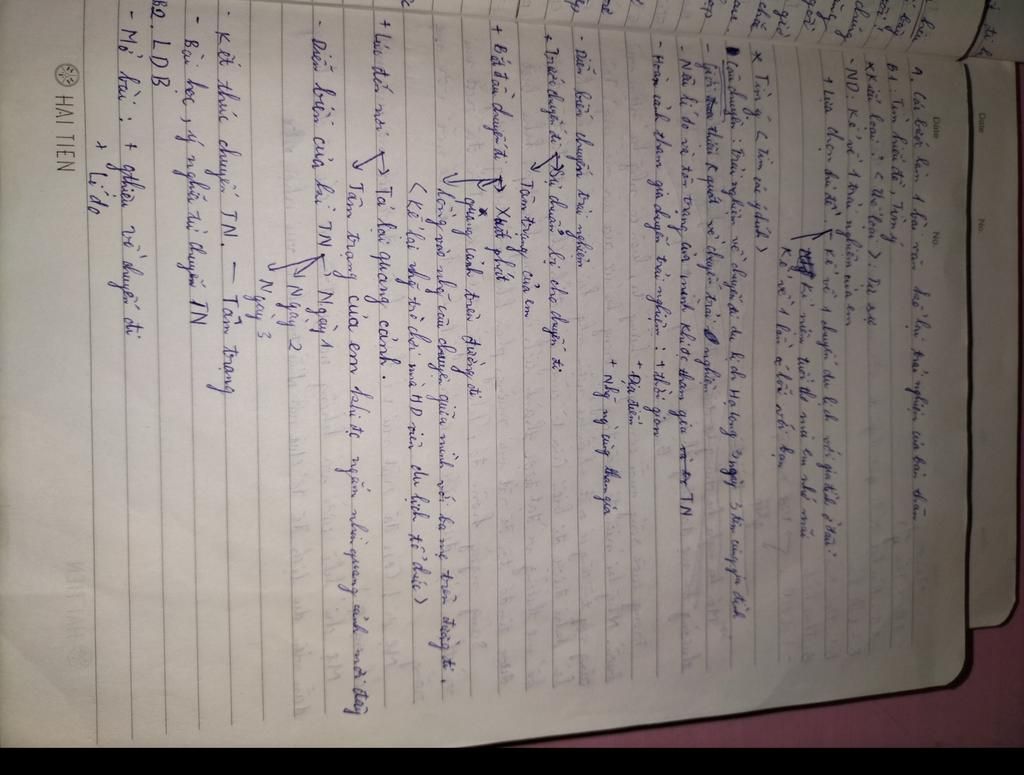 Date No.
Date No.
1. Các bước làm 1 bài văn kể lại trải nghiệm của bản thân
B1: Tìm hiểu đề, tìm ý
* Kiểu bài: < thể loại > : Tự sự
- ND: Kể về 1 trải nghiệm của em
+ Lựa chọn bài để kể về 1 chuyến du lịch với gia đình ở đâu
kỉ niệm tuổi thơ mà em nhớ mãi
Kể về 1 lần có lỗi với bạn
* Tìm ý < tìm cái ý chính >
Câu chuyện: trải nghiệm về chuyến đi du lịch Hạ Long 3 ngày 3 đêm cùng gia đình
- Giới thiệu k quát về chuyến trải nghiệm
- Nêu lí do và tâm trạng của mình khi đc tham gia TN
- Hoàn cảnh tham gia chuyến trải nghiệm: + thời gian
+ Địa điểm
+ Nhữg ng` cùng tham gia
- Diễn biến chuyến trải nghiệm
+ Trước chuyến đi → Sự chuẩn bị cho chuyến đi
Tâm trạng của em
+ Bắt đầu chuyến đi → Xuất phát
quang cảnh trên đường đi
Lồng vào nhữg câu chuyện giữa mình với ba mẹ trên đường đi.
< Kể lại nhữg trò chơi mà HD viên du lịch tổ chức >
+ Lúc đến nơi → Tả lại quang cảnh.
Tâm trạng của em khi đc ngắm nhìn quang cảnh nơi đây
- Diễn biến của bài TN Ngày 1
Ngày 2
Ngày 3
- Kết thúc chuyến TN. — Tâm trạng
- Bài học, ý nghĩa từ chuyến TN
B2. LDB
- Mở bài: + ghiệu về chuyến đi
+ Lí do
HAI TIEN